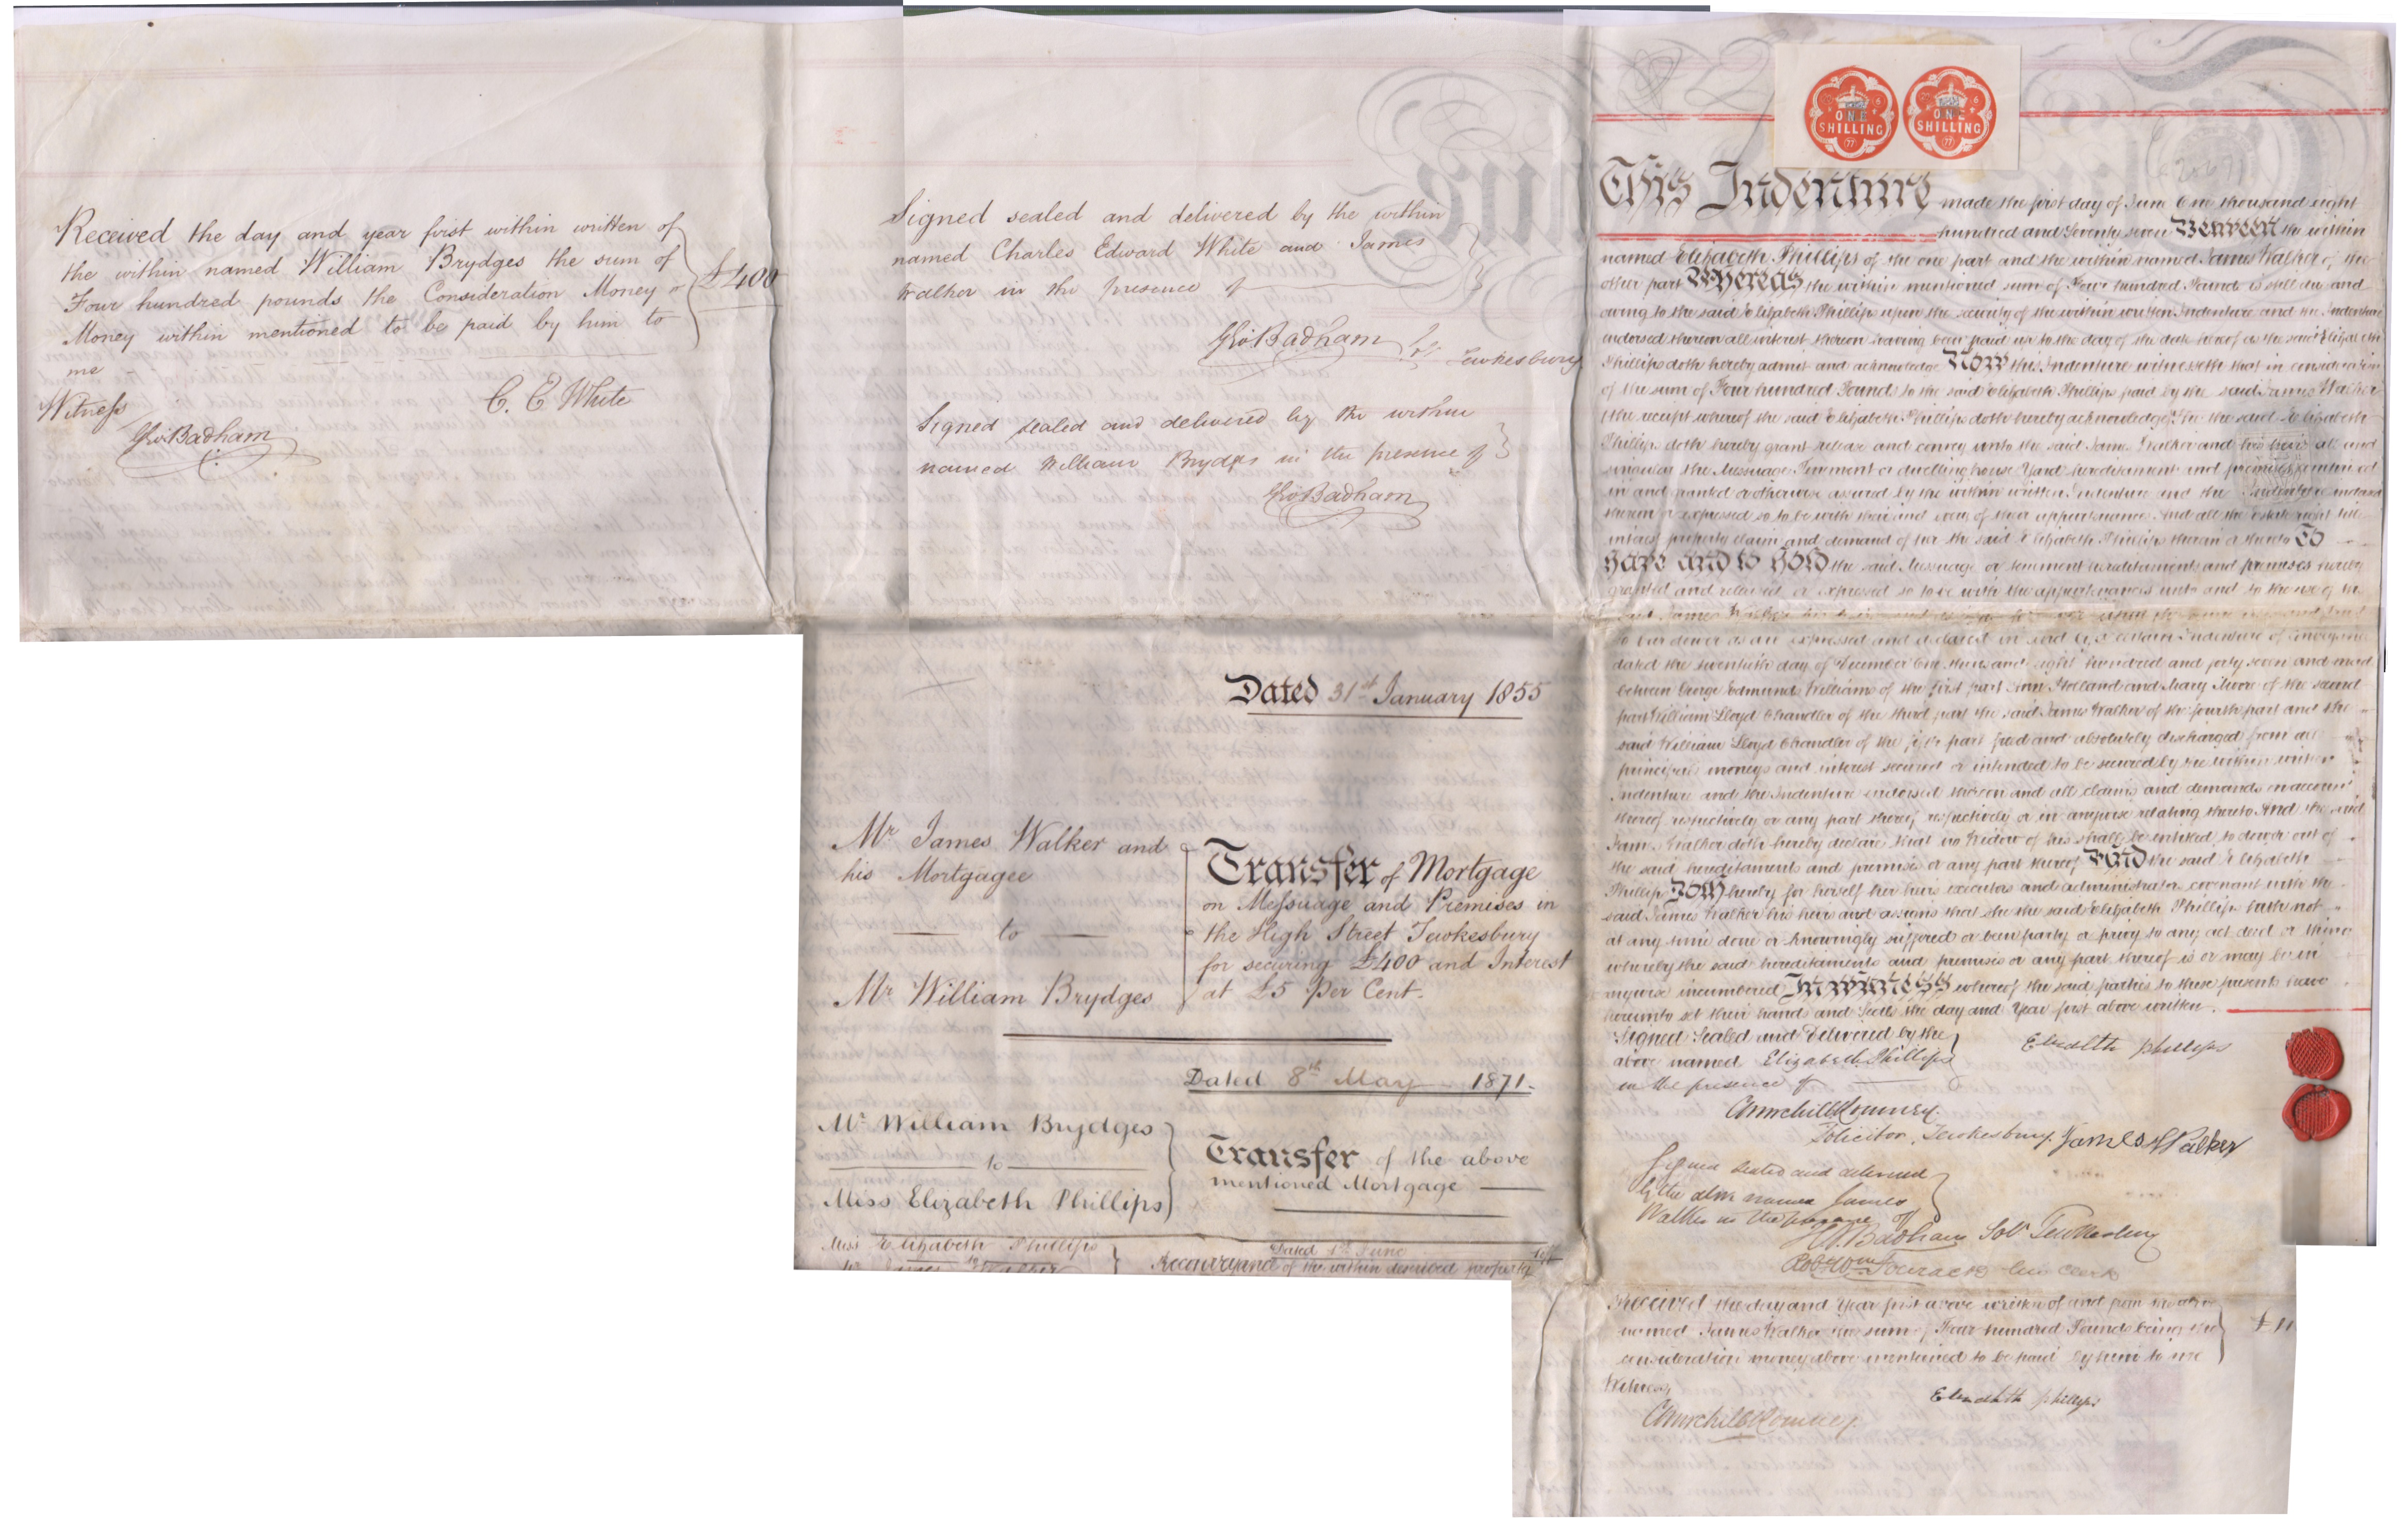 Received the day and year first within written of
the within named William Brydges the sum of
Four hundred pounds the Consideration Money or
Money within mentioned to be paid by him to
me
£400
C. E. White
Witness
Geo Badham
Signed sealed and delivered by the within
named Charles Edward White and James
Walker in the presence of
Geo Badham Solr Tewkesbury
Signed sealed and delivered by the within
named William Brydges in the presence of
Geo Badham
Dated 31st January 1855
Mr James Walker and
his Mortgagee
to
Mr William Brydges
Transfer of Mortgage
on Messuage and Premises in
the High Street Tewkesbury
for securing £400 and Interest
at £5 Per Cent.
Dated 8th May 1871.
Mr William Brydges
to
Miss Elizabeth Phillips
Transfer of the above
mentioned Mortgage
Miss Elizabeth Phillips
to
Mr James Walker
Dated 1st June
Reconveyance of the within described property
ONE SHILLING
ONE SHILLING
This Indenture made the first day of June One thousand eight
hundred and seventy seven Between the within
named Elizabeth Phillips of the one part and the within named James Walker of the
other part Whereas the within mentioned sum of Four hundred Pounds is still due and
owing to the said Elizabeth Phillips upon the security of the within written Indenture and the Indenture
endorsed thereon all interest thereon having been paid up to the day of the date hereof as the said Elizabeth
Phillips doth hereby admit and acknowledge Now this Indenture witnesseth that in consideration
of the sum of Four hundred Pounds to the said Elizabeth Phillips paid by the said James Walker
(the receipt whereof the said Elizabeth Phillips doth hereby acknowledge) She the said Elizabeth
Phillips doth hereby grant release and convey unto the said James Walker and his heirs all and
singular the Messuage Tenement or dwellinghouse Yard hereditaments and premises comprised
in and granted or otherwise assured by the within written Indenture and the Indenture endorsed
thereon or expressed so to be with their and every of their appurtenances And all the estate right title
interest property claim and demand of her the said Elizabeth Phillips therein or thereto To
have and to hold the said Messuage or tenement hereditaments and premises hereby
granted and released or expressed so to be with the appurtenances unto and to the use of the
said James Walker his heirs and assigns
to bar dower as are expressed and declared in and by a certain Indenture of Conveyance
dated the twentieth day of December One thousand eight hundred and forty seven and made
between George Edmund Williams of the first part Ann Holland and Mary Moore of the second
part William Lloyd Chandler of the third part the said James Walker of the fourth part and the
said William Lloyd Chandler of the fifth part freed and absolutely discharged from all
principal moneys and interest secured or intended to be secured by the within written
Indenture and the Indenture endorsed thereon and all claims and demands on account
thereof respectively or any part thereof respectively or in anywise relating thereto And the said
James Walker doth hereby declare that no Widow of his shall be entitled to dower out of
the said hereditaments and premises or any part thereof And the said Elizabeth
Phillips Doth hereby for herself her heirs executors and administrators covenant with the
said James Walker his heirs and assigns that she the said Elizabeth Phillips hath not
at any time done or knowingly suffered or been party or privy to any act deed or thing
whereby the said hereditaments and premises or any part thereof is or may be in
anywise incumbered In Witness whereof the said parties to these presents have
hereunto set their hands and Seals the day and Year first above written.
Signed Sealed and Delivered by the
above named Elizabeth Phillips
in the presence of
Elizabeth Phillips
Solicitor, Tewkesbury.
James Walker
Signed sealed and delivered
by the above named James
Walker in the presence of
Badham Solr Tewkesbury
his clerk
Received the day and Year first above written of and from the above
named James Walker the sum of Four hundred Pounds being the
consideration money above mentioned to be paid by him to me
Witness
Elizabeth Phillips